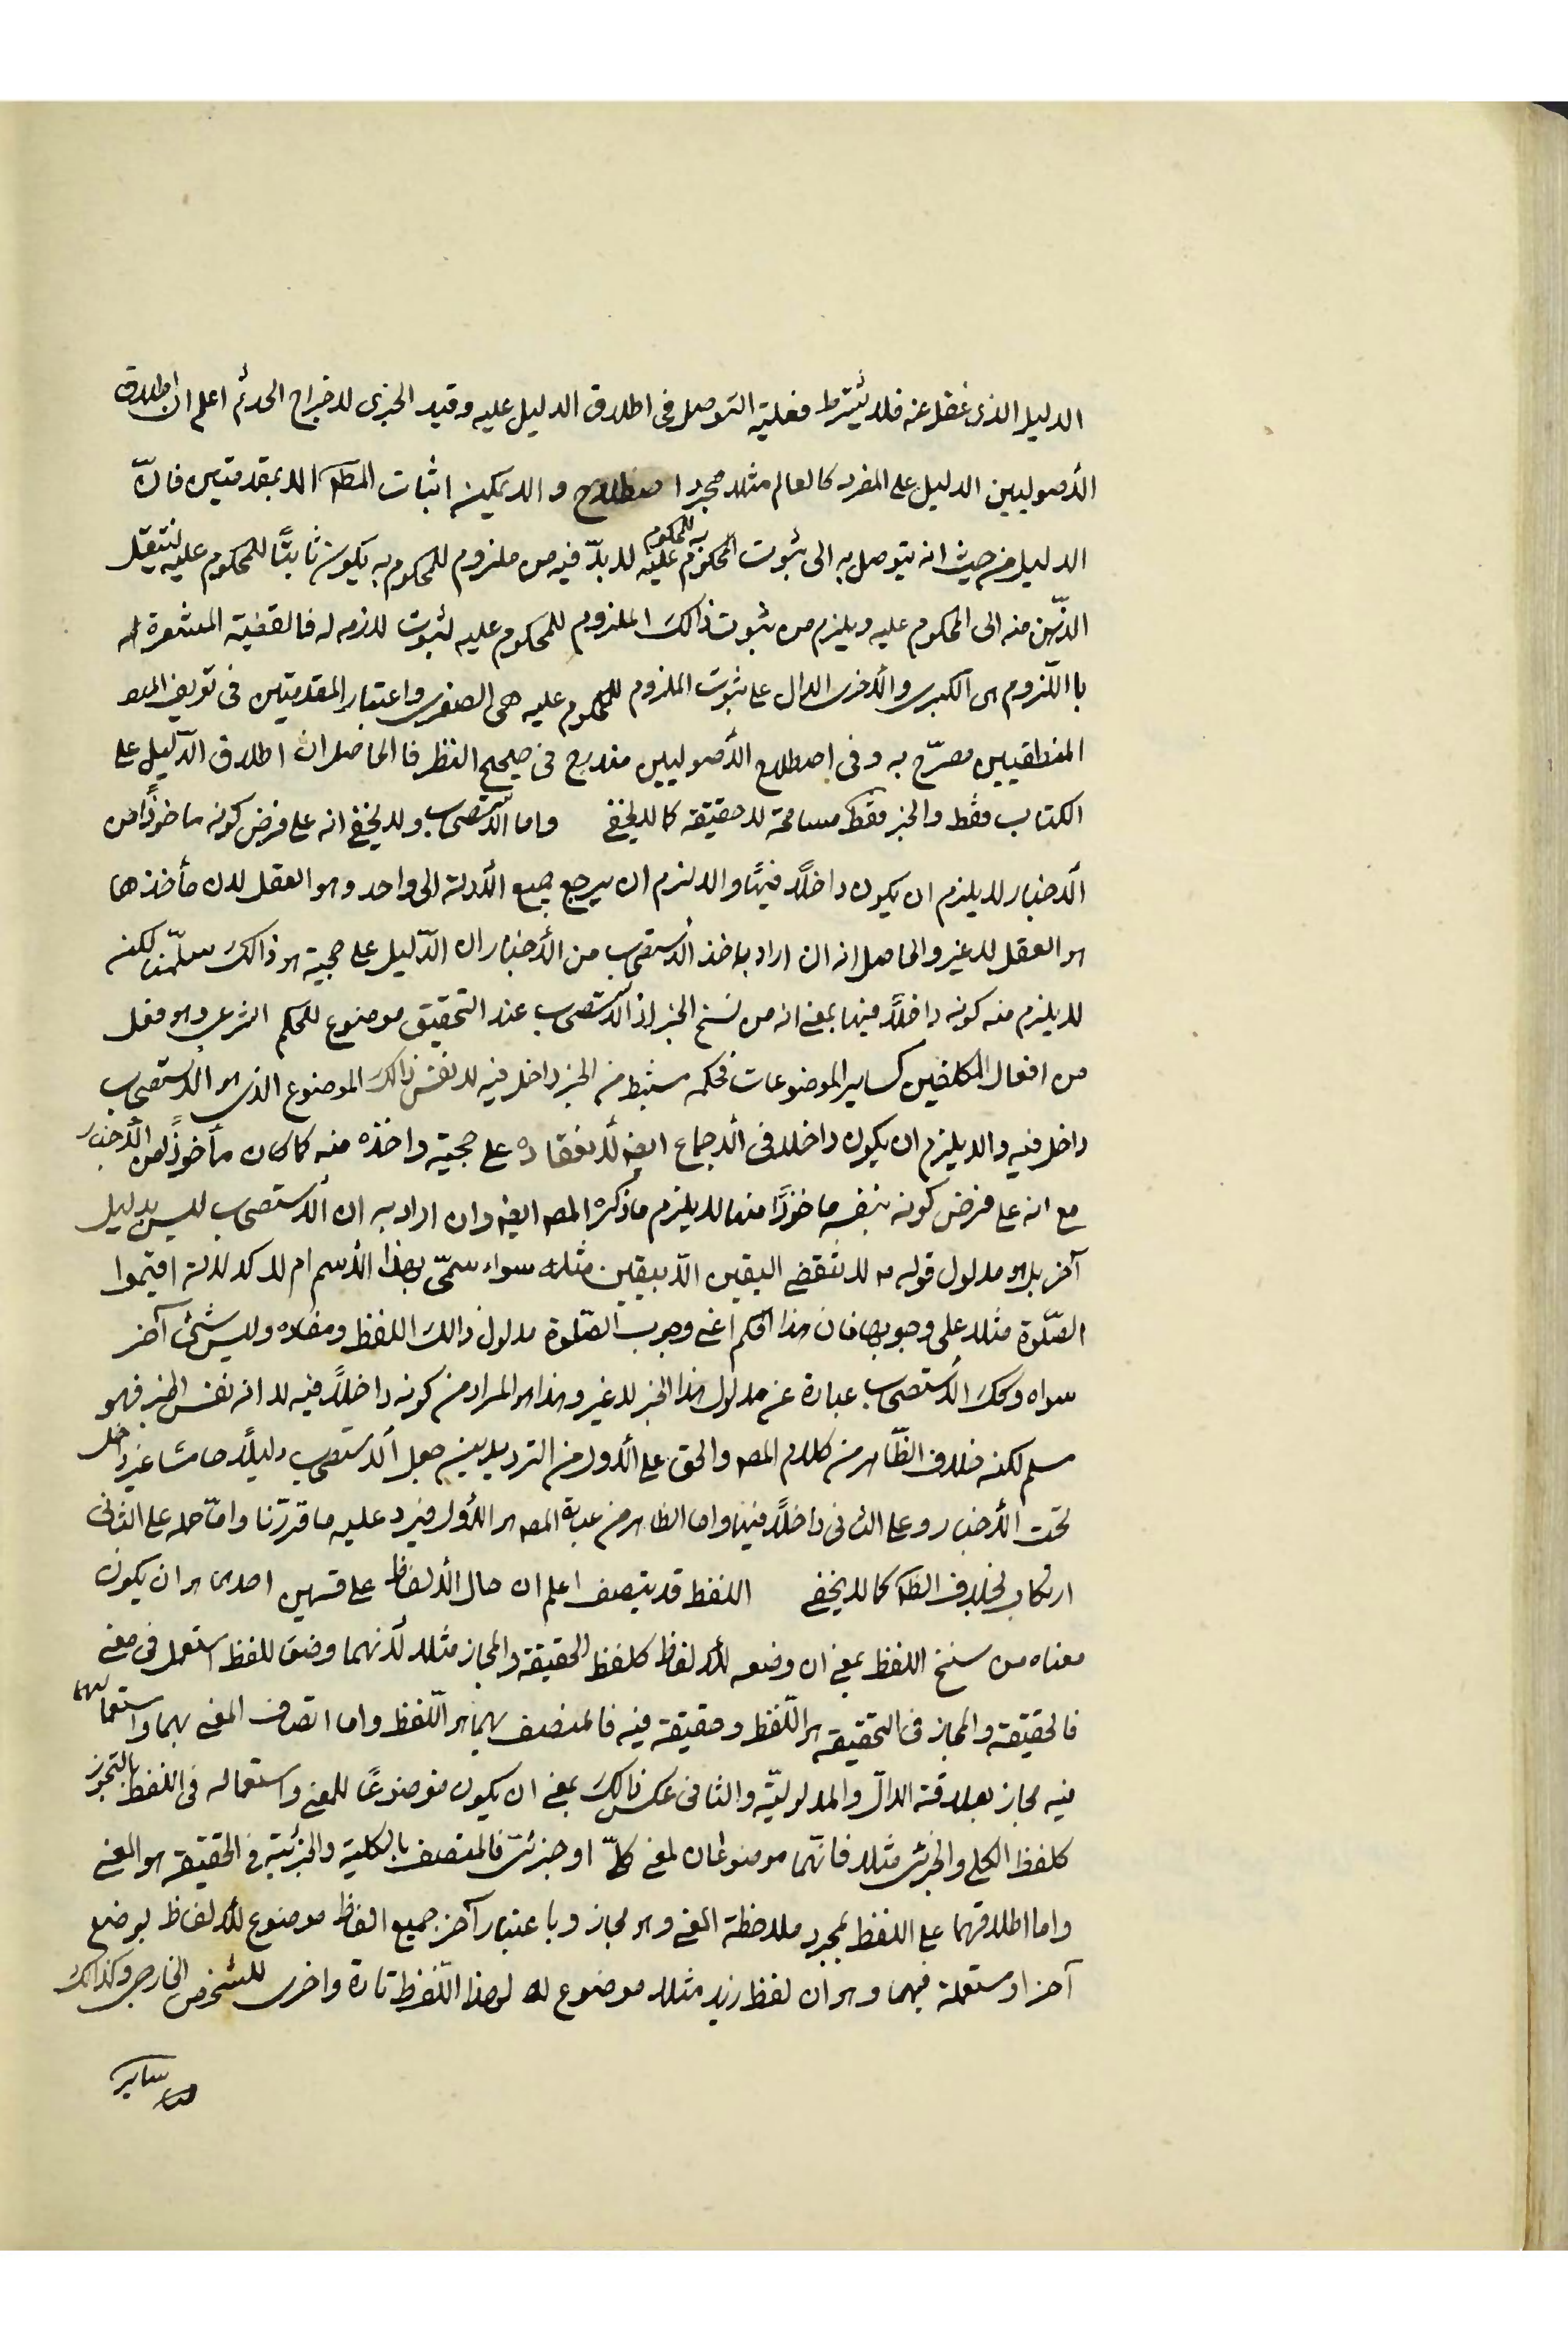 الدليل الذى غفل عنه فلا يشترط فعلية التوصل فى اطلاق الدليل عليه وقيد الخبرى لاخراج الحد ثم اعلم ان اطلاق
الأصوليين الدليل على المفرد كالعالم مثلا مجرد اصطلاح و الا يمكن اثبات المط الا بمقدمتين فانّ
الدليل من حيث انه يتوصل به الى ثبوت المحكوم به للمحكوم عليه لا بدّ فيه من ملزوم للمحكوم به يكون ثابتًا للمحكوم عليه لينتقل
الذّهن منه الى المحكوم عليه ويلزم من ثبوت ذالك الملزوم للمحكوم عليه لثبوت لازمه له فالقضية المشعرة
با اللّزوم هى الكبرى والأخرى الدال على ثبوت الملزوم للمحكوم عليه هى الصغرى واعتبار المقدمتين فى تعريف
المنطقيين مصرّح به وفى اصطلاح الأصوليين مندرج فى صحيح النظر فا الحاصل ان اطلاق الدّليل على
الكتاب فقط والخبر فقط مسامحة لا حقيقه كما لا يخفى واما الاستصحاب ولا يخفى انه على فرض كونه ماخوذًا من
الأخبار لا يلزم ان يكون داخلًا فيها والا لزم ان يرجع جميع الأدلة الى واحد وهو العقل لان مأخذها
هو العقل لا غير والحاصل انه ان اراد باخذ الاستصحاب من الأخبار ان الدّليل على حجيته هو ذالك سلّمنا لكنه
لا يلزم منه كونه داخلًا فيها بمعنى انه من سنخ الخبر اذ الاستصحاب عند التحقيق موضوع للحكم الشرعى وهو فعل
من افعال المكلفين كساير الموضوعات فحكمه مستنبط من الخبر داخل فيه لا نفس ذالك الموضوع الذى هو الاستصحاب
داخل فيه والا يلزم ان يكون داخلا فى الاجماع ايضا لانعقاده على حجيته واخذه منه كما كان مأخوذًا من الأخبار
مع انه على فرض كونه بنفسه ماخوذًا منها لا يلزم ما ذكره المصـ ايضا وان اراد به ان الاستصحاب ليس بدليل
آخر بل هو مدلول قوله لا تنقض اليقين الّا بيقين مثله سواء سمّى بهذا الأسم ام لا كدلالة اقيموا
الصّلوة مثلا على وجوبها فان هذا الحكم اعنى وجوب الصّلوة مدلول ذالك اللفظ ومفاده وليس شئ آخر
سواه وكك الاستصحاب عبارة عن مدلول هذا الخبر لا غير وهذا هو المراد من كونه داخلًا فيه لا انه نفس الخبر فهو
مسلم لكنه خلاف الظّاهر من كلام المصـ والحق على الأول من الترديدين جعل الاستصحاب دليلًا خامسًا غير داخل
تحت الأخبار وعلى الثانى داخلًا فيها واما الظاهر من عبارة المصـ هو الأول فيرد عليه ما قررّنا وامّا حمله على الثانى
ارتكاب لخلاف الظـ كما لا يخفى اللفظ قد يتصف اعلم ان حال الألفاظ على قسمين احدهما هو ان يكون
معناه من سنخ اللفظ بمعنى ان وضعه للألفاظ كلفظ الحقيقة والمجاز مثلا لأنهما وضعتا للفظ استعمل فى معنى
فالحقيقة والمجاز فى التحقيقه هو اللّفظ وحقيقة فيه فالمتصف بهما هو اللّفظ واما اتصاف المعنى بهما واستعمالهما
فيه مجاز بعلاقة الدالّ والمدلوليّة والثانى عكس ذالك بمعنى ان يكون موضوعًا للمعنى واستعماله فى اللفظ بالتجوز
كلفظ الكلى والجزئى مثلا فانّهما موضوعان لمعنى كلّ او جزئى فالمتصف بالكلية والجزئية فى الحقيقه هو المعنى
واما اطلاقهما على اللفظ بمجرد ملاحظة المعنى وهو مجاز وبا عتبار آخر جميع الفاظ موضوع للألفاظ بوضع
آخر او ستعملة فيهما وهو ان لفظ زيد مثلا موضوع له لهذا اللّفظ تارة واخرى للشخص الخارجى وكذالك
ساير